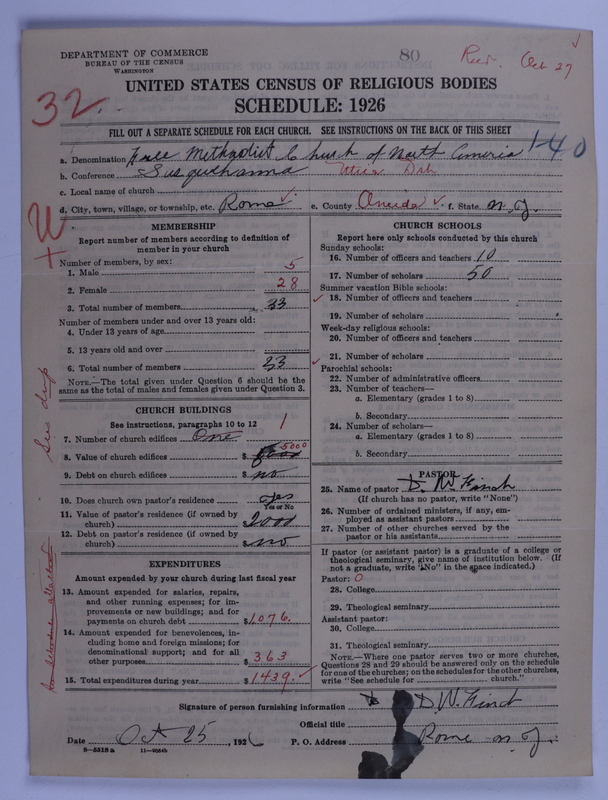 80
Rec. Oct 27
DEPARTMENT OF COMMERCE
BUREAU OF THE CENSUS
WASHINGTON
UNITED STATES CENSUS OF RELIGIOUS BODIES
SCHEDULE: 1926
32
FILL OUT A SEPARATE SCHEDULE FOR EACH CHURCH. SEE INSTRUCTIONS ON THE BACK OF THIS SHEET
a. Denomination Free Methodist Church of North America 1-40
b. Conference Susquehanna Utica Dist
c. Local name of church
d. City, town, village, or township, etc. Rome e. County Oneida f. State N. Y.
MEMBERSHIP
Report number of members according to definition of member in your church
Number of members, by sex:
1. Male 5
2. Female 28
3. Total number of members 33
Number of members under and over 13 years old:
4. Under 13 years of age
5. 13 years old and over
6. Total number of members 33
NOTE.—The total given under Question 6 should be the
same as the total of males and females given under Question 3.
CHURCH BUILDINGS
See instructions, paragraphs 10 to 12
7. Number of church edifices One 1
8. Value of church edifices $ 5000
9. Debt on church edifices $ no
10. Does church own pastor's residence yes
Yes or No
11. Value of pastor's residence (if owned by
church) $ 2000
12. Debt on pastor's residence (if owned by
church) $ no
EXPENDITURES
Amount expended by your church during last fiscal year
13. Amount expended for salaries, repairs,
and other running expenses; for im-
provements or new buildings; and for
payments on church debt $ 1,076.
14. Amount expended for benevolences, in-
cluding home and foreign missions; for
denominational support; and for all
other purposes $ 363
15. Total expenditures during year $ 1439.
CHURCH SCHOOLS
Report here only schools conducted by this church
Sunday schools:
16. Number of officers and teachers 10
17. Number of scholars 50
Summer vacation Bible schools:
18. Number of officers and teachers
19. Number of scholars
Week-day religious schools:
20. Number of officers and teachers
21. Number of scholars
Parochial schools:
22. Number of administrative officers
23. Number of teachers—
a. Elementary (grades 1 to 8)
b. Secondary
24. Number of scholars—
a. Elementary (grades 1 to 8)
b. Secondary
PASTOR
25. Name of pastor D. W. Finch
(If church has no pastor, write "None")
26. Number of ordained ministers, if any, em-
ployed as assistant pastors
27. Number of other churches served by the
pastor or his assistants
If pastor (or assistant pastor) is a graduate of a college or
theological seminary, give name of institution below. (If
not a graduate, write "No" in the space indicated.)
Pastor: 0
28. College
29. Theological seminary
Assistant pastor:
30. College
31. Theological seminary
NOTE.—Where one pastor serves two or more churches,
Questions 28 and 29 should be answered only on the schedule
for one of the churches; on the schedules for the other churches,
write "See schedule for church."
Signature of person furnishing information D. W. Finch
Official title
Date Oct 25, 1926 P. O. Address Rome N. Y.
8-5318a 11-9554b